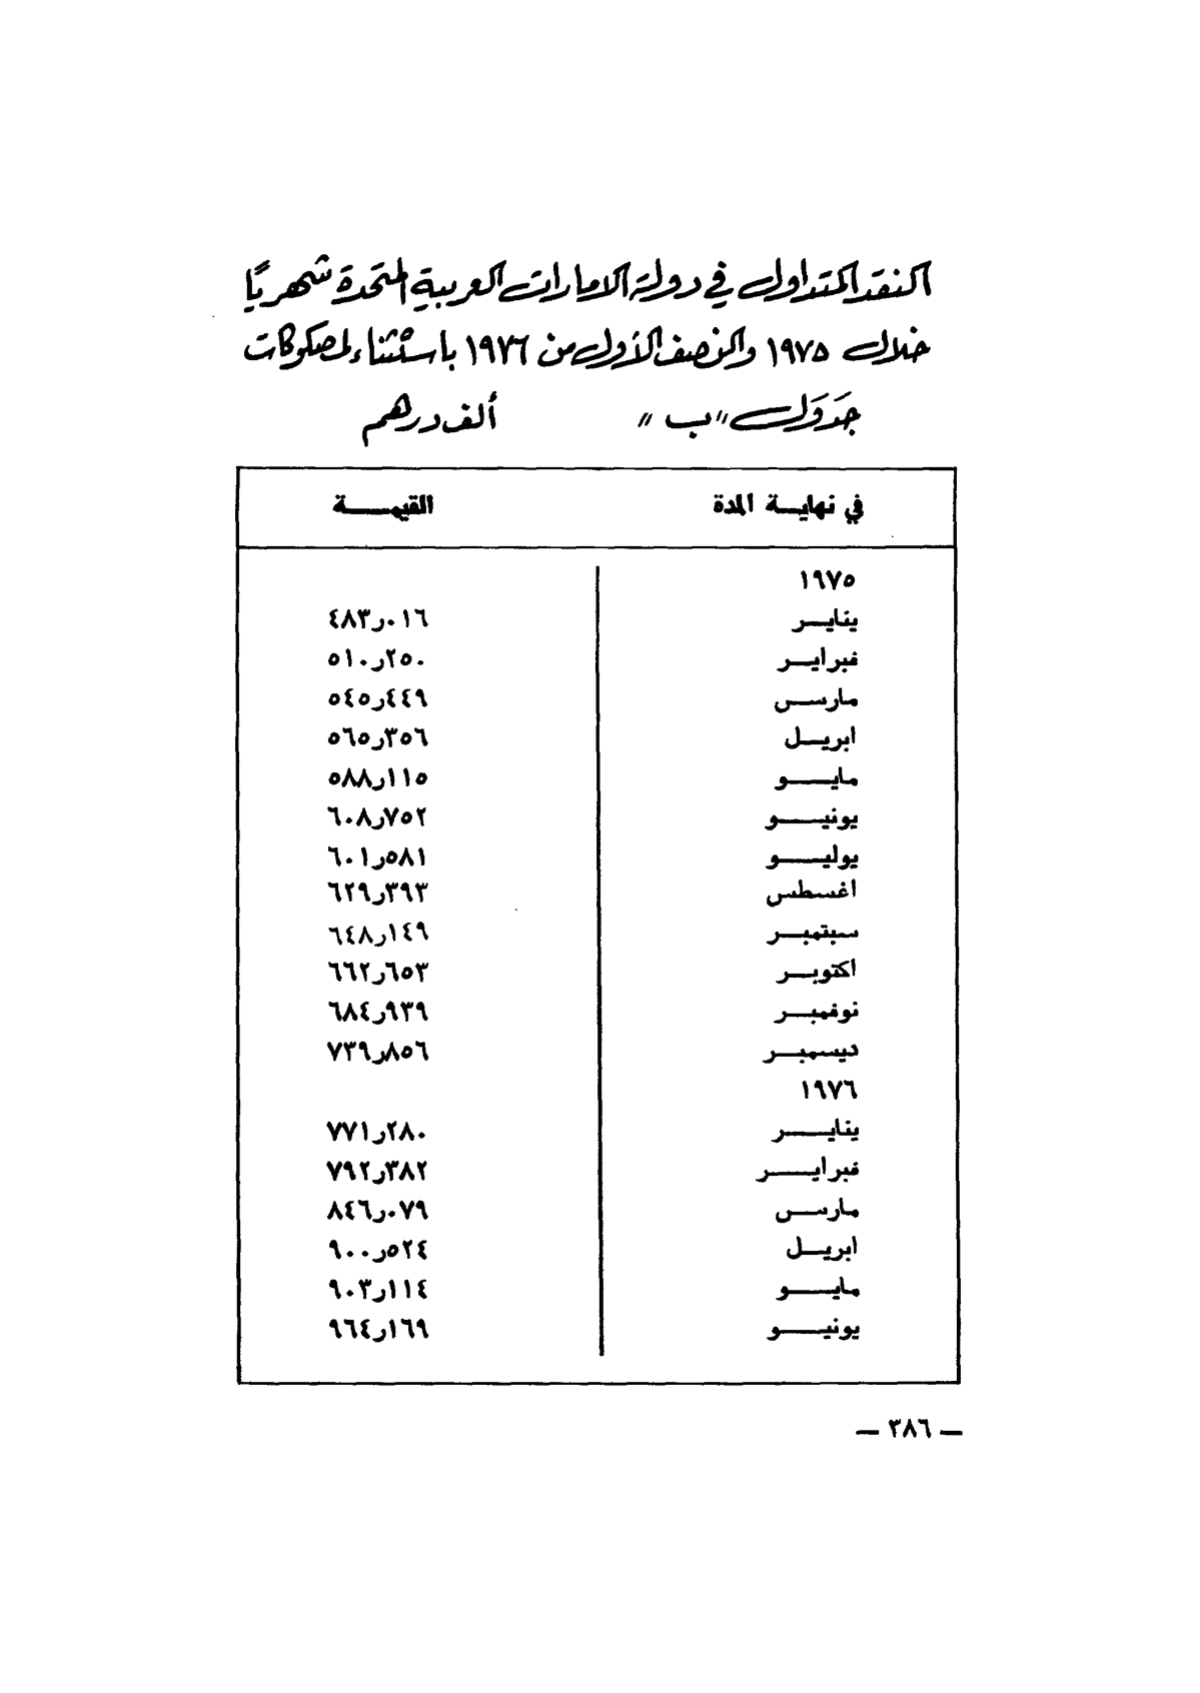 النقد المتداول في دولة الامارات العربية المتحدة شهريًا
خلال ١٩٧٥ والنصف الأول من ١٩٧٦ باستثناء المصكوكات
جَدوَل "ب" ألف درهم
في نهاية المدة القيمة
١٩٧٥
يناير ٤٨٣ر٠١٦
فبراير ٥١٠ر٢٥٠
مارس ٥٤٥ر٤٤٩
ابريل ٥٦٥ر٣٥٦
مايو ٥٨٨ر١١٥
يونيو ٦٠٨ر٧٥٢
يوليو ٦٠١ر٥٨١
اغسطس ٦٢٩ر٣٩٣
سبتمبر ٦٤٨ر١٤٩
اكتوبر ٦٦٢ر٦٥٣
نوفمبر ٦٨٤ر٩٣٩
ديسمبر ٧٣٩ر٨٥٦
١٩٧٦
يناير ٧٧١ر٢٨٠
فبراير ٧٩٢ر٣٨٢
مارس ٨٤٦ر٠٧٩
ابريل ٩٠٠ر٥٢٤
مايو ٩٠٣ر١١٤
يونيو ٩٦٤ر١٦٩
— ٣٨٦ —